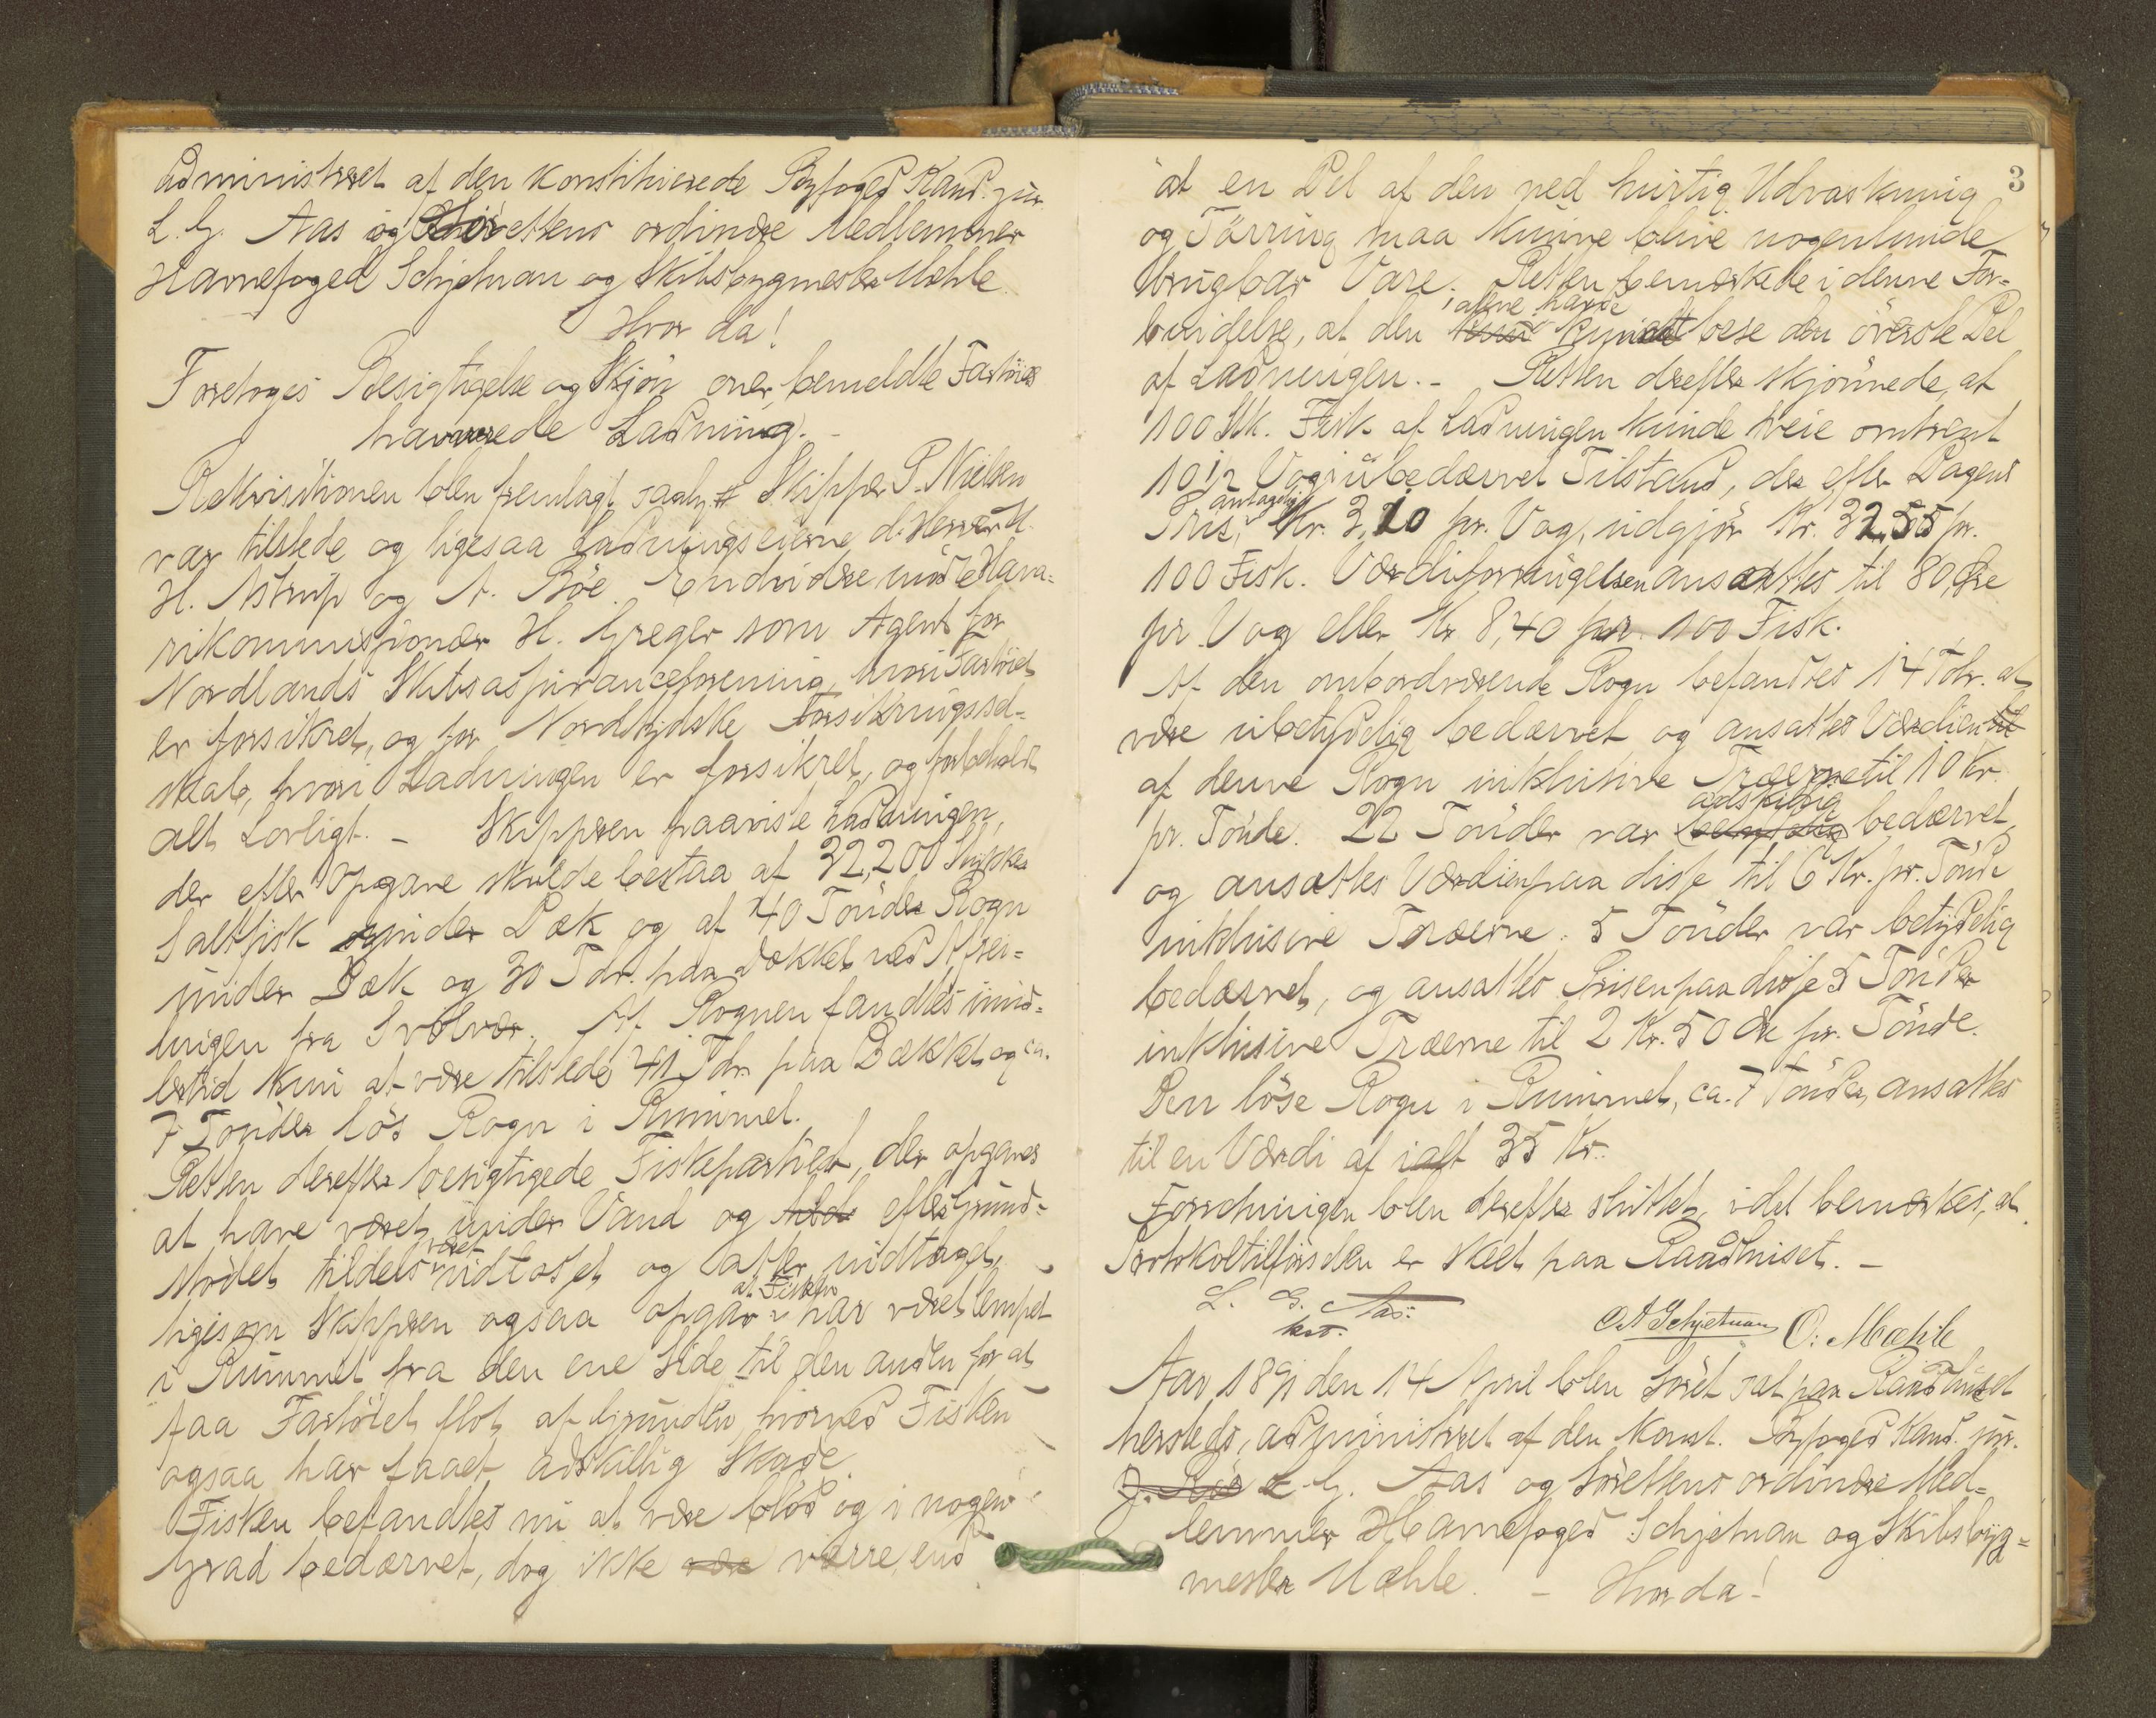 administreret af den konstituerede Byfoged Kand. jur.
L. G. Aas og Sörettens ordinære Medlemmer
Havnefoged Schjetnan og Skibsbygmester Mæhle
Hvor da!
Foretoges Besigtigelse og Skjön over bemeldte Fartöies
havarerede Ladning. -
Rekvisitionen blev fremlagt Skipper P. Nielsen
var tilstede og ligesaa Ladningseierne d'Herrer H.
H. Astrup og A. Böe. Endvidere mödte Hava-
rikommissionær H. Greger som Agent for
Nordlands Skibsassuranceforening, hvori Fartöiet
er forsikret, og for Nordtydske Forsikringssel-
skab, hvori Ladningen er forsikret, og forbeholdt
alt Lovligt. - Skipperen paaviste Ladningen,
der efter Opgave skulde bestaa af 32,200 Stykker
Saltfisk under Dæk og af 40 Tönder Rogn
under Dæk og 30 Tdr. paa Dækket ved Afsei-
lingen fra Svolvær. Af Rognen fandtes imid-
lertid kun at være tilstede 41 Tdr. paa Dækket og ca.
7 Tönder lös Rogn i Rummet.
Retten derefter besigtigede Fiskepartiet, der opgaves
at have været under Vand og efter Grund-
stödet tildels været udlosset og atter indtaget,
ligesom Skipperen ogsaa opgav at Fisken har været lempet
i Rummet fra den ene Side til den anden for at
faa Fartöiet flot af Grunden, hvorved Fisken
ogsaa har faaet adskillig Skade.
Fisken befandtes nu at være blöd og i nogen
Grad bedærvet, dog ikke værre, end
3
at en Del af den ved hurtig Udvaskning
og Törring maa kunne blive nogenlunde
brugbar Vare. Retten bemærkede i denne For-
bindelse, at den alene havde kunnet bese den överste Del
af Ladningen. - Retten derefter skjönnede, at
100 Stk. Fisk af Ladningen kunde veie omtrent
10 1/2 Vog i übedærvet Tilstand, der efter Dagens
Pris, antagelig Kr. 3,10 pr. Vog, udgjör Kr. 32,55 pr.
100 Fisk. Værdiforringelsen ansættes til 80 Öre
pr. Vog eller Kr 8,40 pr. 100 Fisk.
Af den ombordværende Rogn befandtes 14 Tdr. at
være ubetydelig bedærvet og ansattes Værdien
af denne Rogn inklusive Træerne til 10 Kr.
pr. Tönde. 22 Tönder var adskillig bedærvet,
og ansattes Værdien paa disse til 6 Kr. pr. Tönde
inklusive Træerne. 5 Tönder var betydelig
bedærvet, og ansattes Prisen paa disse 5 Tönder
inklusive Træerne til 2 Kr. 50 Öre pr. Tönde.
Den löse Rogn i Rummet, ca. 7 Tönder, ansattes
til en Værdi af ialt 35 Kr.
Forretningen blev derefter sluttet, idet bemærkes, at
Protokoltilförselen er skeet paa Raadhuset. -
L. G. Aas.
kst.
O A Schjetnan O. Mæhle
Aar 1891 den 14 April blev Söret sat paa Raadhuset
hersteds, administreret af den konst. Byfoged Kand. jur.
L. G. Aas og Sörettens ordinære Med-
lemmer Havnefoged Schjetnan og Skibsbyg-
mester Mæhle. - Hvor da!